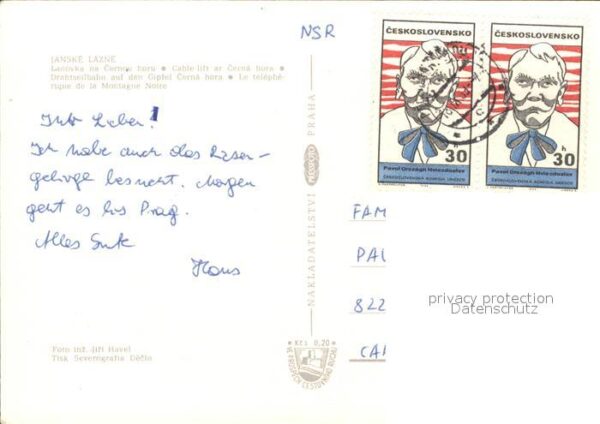 NSR
JANSKÉ LÁZNĚ
Lanovka na Černou horu ● Cable lift at Černá hora ●
Drahtseilbahn auf den Gipfel Černá hora ● Le téléphé-
rique de la Montagne Noire
Ihr Lieben!
Ich habe auch das Riesen-
gebirge besucht. Morgen
geht es bis Prag.
Alles Gute
Hans
Foto inž. Jiří Havel
Tisk Severografia Děčín
NAKLADATELSTVÍ ORBIS PRAHA
Kčs 0,20
VE PROSPĚCH CESTOVNÍHO RUCHU
ČESKOSLOVENSKO
30 h
Pavol Országh Hviezdoslav
ČESKOSLOVENSKÁ KOMISIA UNESCO
ČESKOSLOVENSKO
30 h
Pavol Országh Hviezdoslav
ČESKOSLOVENSKÁ KOMISIA UNESCO
FAM
PAU
822
CA
privacy protection
Datenschutz